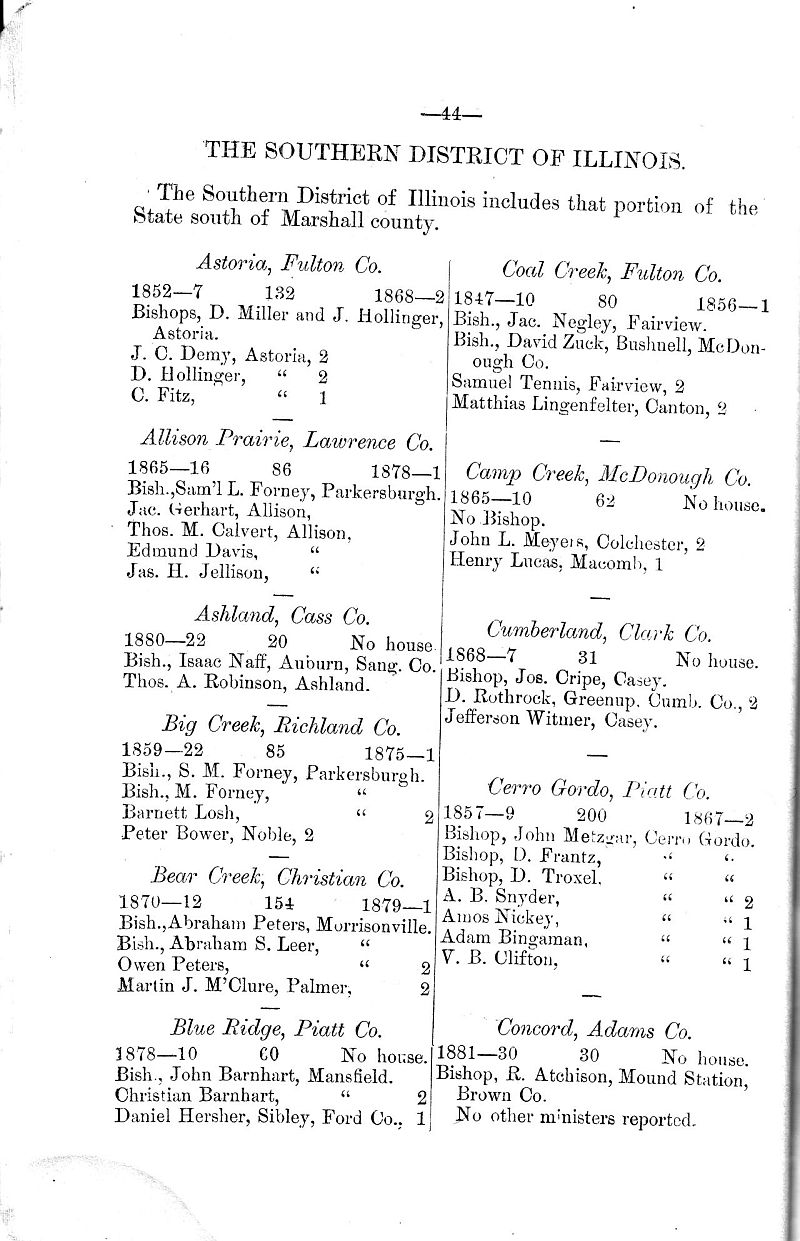 —44—
THE SOUTHERN DISTRICT OF ILLINOIS.
The Southern District of Illinois includes that portion of the
State south of Marshall county.
Astoria, Fulton Co.
1852—7 132 1868—2
Bishops, D. Miller and J. Hollinger,
Astoria.
J. C. Demy, Astoria, 2
D. Hollinger, “ 2
C. Fitz, “ 1
—
Allison Prairie, Lawrence Co.
1865—16 86 1878—1
Bish.,Sam'l L. Forney, Parkersburgh.
Jac. Gerhart, Allison,
Thos. M. Calvert, Allison,
Edmund Davis, “
Jas. H. Jellison, “
—
Ashland, Cass Co.
1880—22 20 No house.
Bish., Isaac Naff, Auburn, Sang. Co.
Thos. A. Robinson, Ashland.
—
Big Creek, Richland Co.
1859—22 85 1875—1
Bish., S. M. Forney, Parkersburgh.
Bish., M. Forney, “
Barnett Losh, “ 2
Peter Bower, Noble, 2
—
Bear Creek, Christian Co.
1870—12 154 1879—1
Bish.,Abraham Peters, Morrisonville.
Bish., Abraham S. Leer, “
Owen Peters, “ 2
Martin J. M'Clure, Palmer, 2
—
Blue Ridge, Piatt Co.
1878—10 60 No house.
Bish., John Barnhart, Mansfield.
Christian Barnhart, “ 2
Daniel Hersher, Sibley, Ford Co., 1
Coal Creek, Fulton Co.
1847—10 80 1856—1
Bish., Jac. Negley, Fairview.
Bish., David Zuck, Bushnell, McDon-
ough Co.
Samuel Tennis, Fairview, 2
Matthias Lingenfelter, Canton, 2
—
Camp Creek, McDonough Co.
1865—10 62 No house.
No Bishop.
John L. Meyers, Colchester, 2
Henry Lucas, Macomb, 1
—
Cumberland, Clark Co.
1868—7 31 No house.
Bishop, Jos. Cripe, Casey.
D. Rothrock, Greenup, Cumb. Co., 2
Jefferson Witmer, Casey.
—
Cerro Gordo, Piatt Co.
1857—9 200 1867—2
Bishop, John Metzgar, Cerro Gordo.
Bishop, D. Frantz, “ “
Bishop, D. Troxel, “ “
A. B. Snyder, “ “ 2
Amos Nickey, “ “ 1
Adam Bingaman, “ “ 1
V. B. Clifton, “ “ 1
—
Concord, Adams Co.
1881—30 30 No house.
Bishop, R. Atchison, Mound Station,
Brown Co.
No other ministers reported.